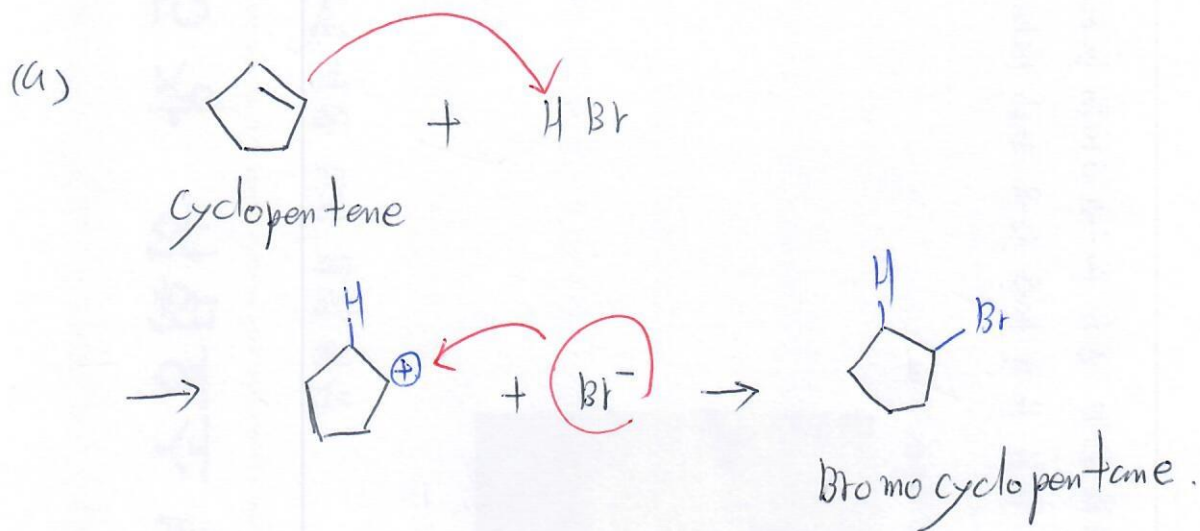 (a)
+ H Br
cyclopentene
H
H
Br
→ ⊕ + Br⁻ →
Bromocyclopentane.